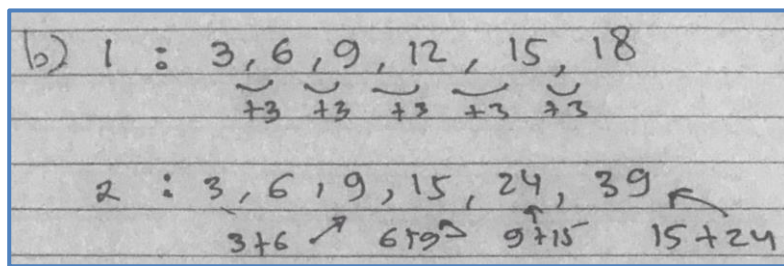 b) 1 : 3, 6, 9, 12, 15, 18
+3 +3 +3 +3 +3
2 : 3, 6, 9, 15, 24, 39
3+6 6+9 9+15 15+24